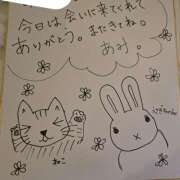 今日は会いに来てくれて
ありがとう。またきてね。
あみ。
ねこ